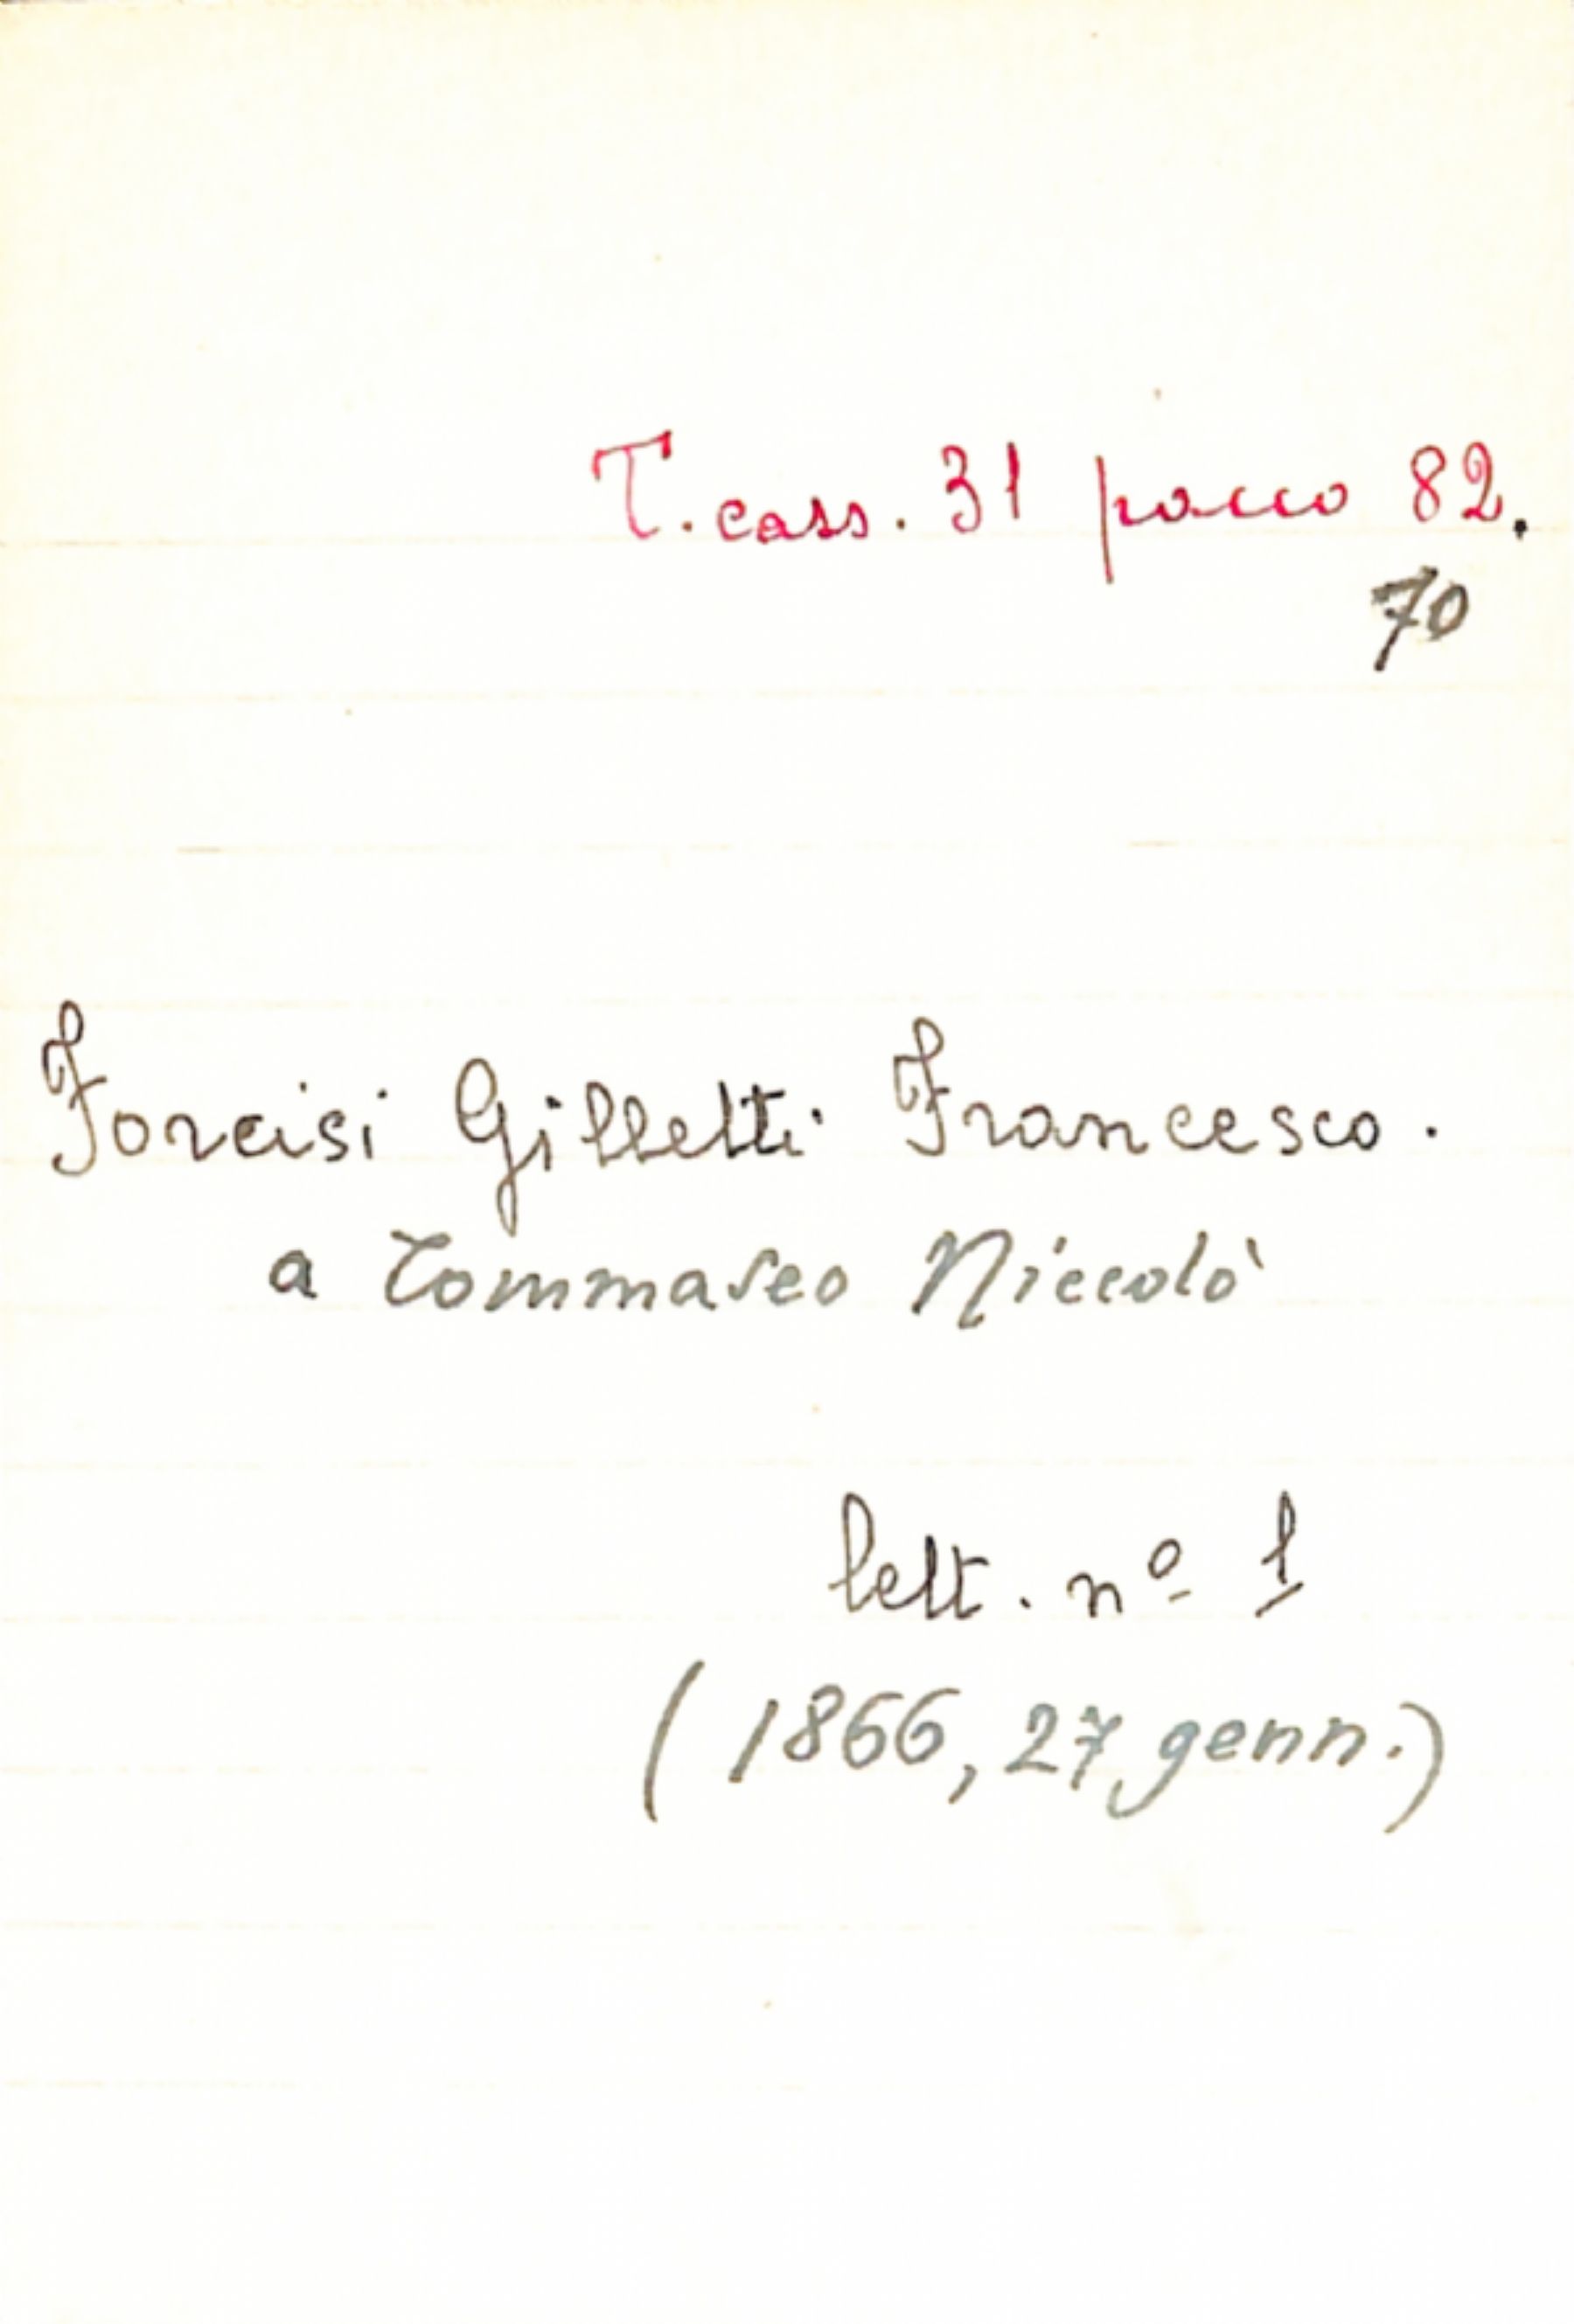 T. cass. 31 pacco 82.
70
Forcisi Gilletti Francesco.
a Tommaseo Niccolò
lett. nº 1
(1866, 27 genn.)